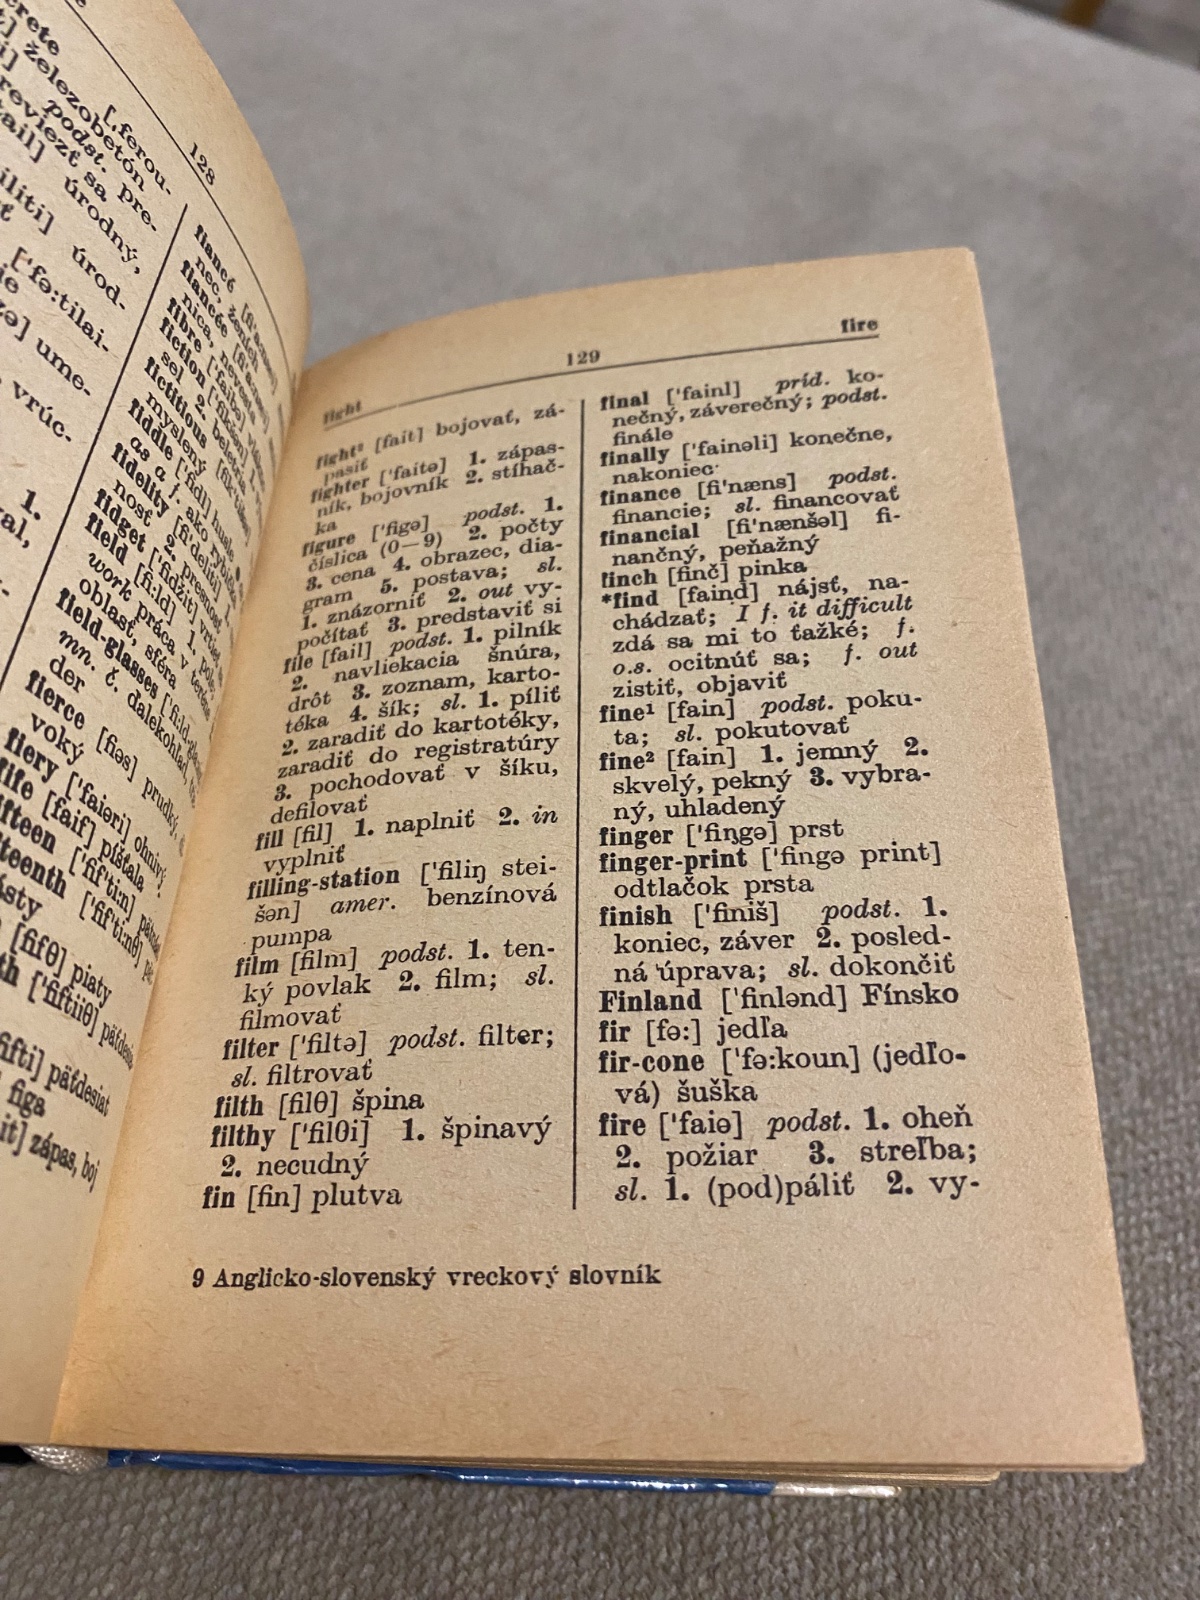 128
[ˌferou-
železobetón
podst. pre-
reviezť sa
úrodný,
úrod-
[ˈfə:tilai-
ume-
vrúc-
1.
fiancé
nec, ženích
fiancée
nica, nevesta
fibre [ˈfaibə]
fiction
sel 2. beletria
fictitious
myslený
fiddle [ˈfidl] husle
as a f. ako rybička
fidelity [fiˈdeliti] 1.
nosť 2. presnosť
fidget [ˈfidžit]
field [fi:ld] 1. pole,
work práca v teréne
oblasť, sféra
field-glasses
mn. č. ďalekohľad
der
fierce [fiəs] prudký,
voký
fiery [ˈfaiəri] ohnivý
fife [faif] píšťala
[ˈfifˈti:n]
[ˈfifˈti:nθ]
ásty
[fifθ] piaty
[ˈfiftiiθ]
päťdesiat
figa
zápas, boj
fight
129
fire
fight² [fait] bojovať, zá-
pasiť
fighter [ˈfaitə] 1. zápas-
ník, bojovník 2. stíhač-
ka
figure [ˈfigə] podst. 1.
číslica (0—9) 2. počty
3. cena 4. obrazec, dia-
gram 5. postava; sl.
1. znázorniť 2. out vy-
počítať 3. predstaviť si
file [fail] podst. 1. pilník
2. navliekacia šnúra,
drôt 3. zoznam, karto-
téka 4. šík; sl. 1. píliť
2. zaradiť do kartotéky,
zaradiť do registratúry
3. pochodovať v šíku,
defilovať
fill [fil] 1. naplniť 2. in
vyplniť
filling-station [ˈfiliŋ stei-
šən] amer. benzínová
pumpa
film [film] podst. 1. ten-
ký povlak 2. film; sl.
filmovať
filter [ˈfiltə] podst. filter;
sl. filtrovať
filth [filθ] špina
filthy [ˈfilθi] 1. špinavý
2. necudný
fin [fin] plutva
final [ˈfainl] príd. ko-
nečný, záverečný; podst.
finále
finally [ˈfainəli] konečne,
nakoniec
finance [fiˈnæns] podst.
financie; sl. financovať
financial [fiˈnænšəl] fi-
nančný, peňažný
finch [finč] pinka
*find [faind] nájsť, na-
chádzať; I f. it difficult
zdá sa mi to ťažké; f.
o.s. ocitnúť sa; f. out
zistiť, objaviť
fine¹ [fain] podst. poku-
ta; sl. pokutovať
fine² [fain] 1. jemný 2.
skvelý, pekný 3. vybra-
ný, uhladený
finger [ˈfiŋgə] prst
finger-print [ˈfingə print]
odtlačok prsta
finish [ˈfiniš] podst. 1.
koniec, záver 2. posled-
ná úprava; sl. dokončiť
Finland [ˈfinlənd] Fínsko
fir [fə:] jedľa
fir-cone [ˈfə:koun] (jedľo-
vá) šuška
fire [ˈfaiə] podst. 1. oheň
2. požiar 3. streľba;
sl. 1. (pod)páliť 2. vy-
9 Anglicko-slovenský vreckový slovník